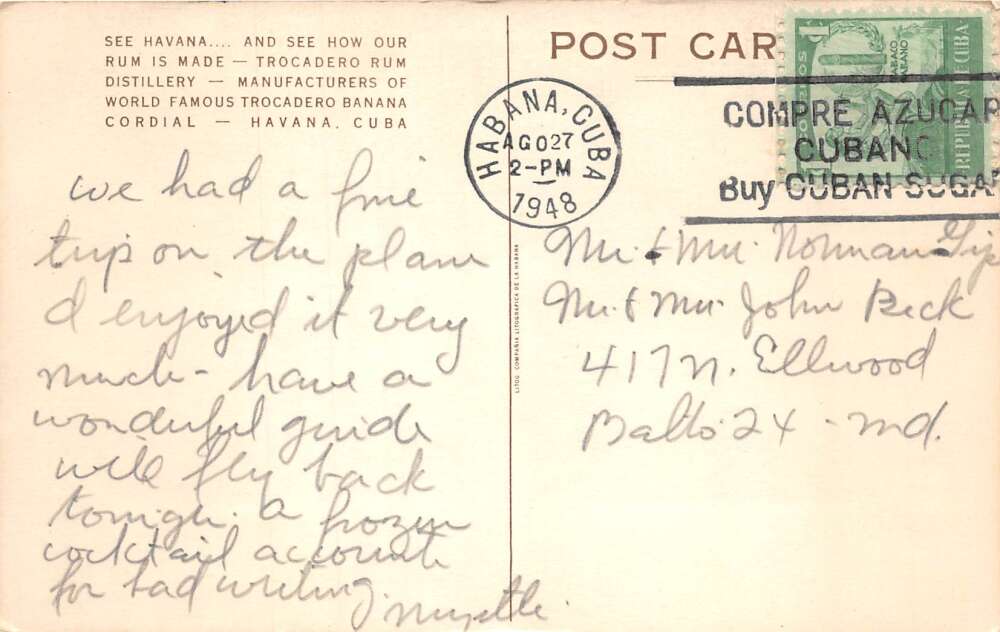 SEE HAVANA.... AND SEE HOW OUR
RUM IS MADE — TROCADERO RUM
DISTILLERY — MANUFACTURERS OF
WORLD FAMOUS TROCADERO BANANA
CORDIAL — HAVANA, CUBA
we had a fine
trip on the plane
I enjoyed it very
much - have a
wonderful guide
will fly back
tonight. a frozen
cocktail accounts
for bad writing.
Myrtle.
LITOG. COMPAÑIA LITOGRAFICA DE LA HABANA
POST CAR
HABANA, CUBA
AGO 27
2-PM
1948
COMPRE AZUCAR
CUBANO
Buy CUBAN SUGAR
REPUBLICA DE CUBA
Mr. & Mrs. Norman
Mr. & Mrs. John Beck
417 N. Ellwood
Balto. 24 - Md.